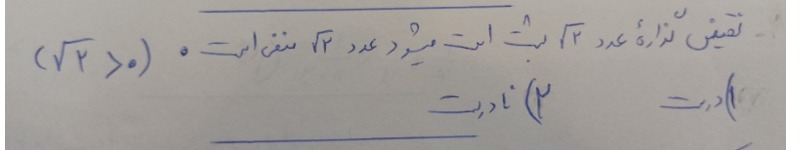 نقیض گزارهٔ عدد √۲ مثبت است میشود عدد √۲ منفی است . (√۲ < ۰)
۱) درست ۲) نادرست